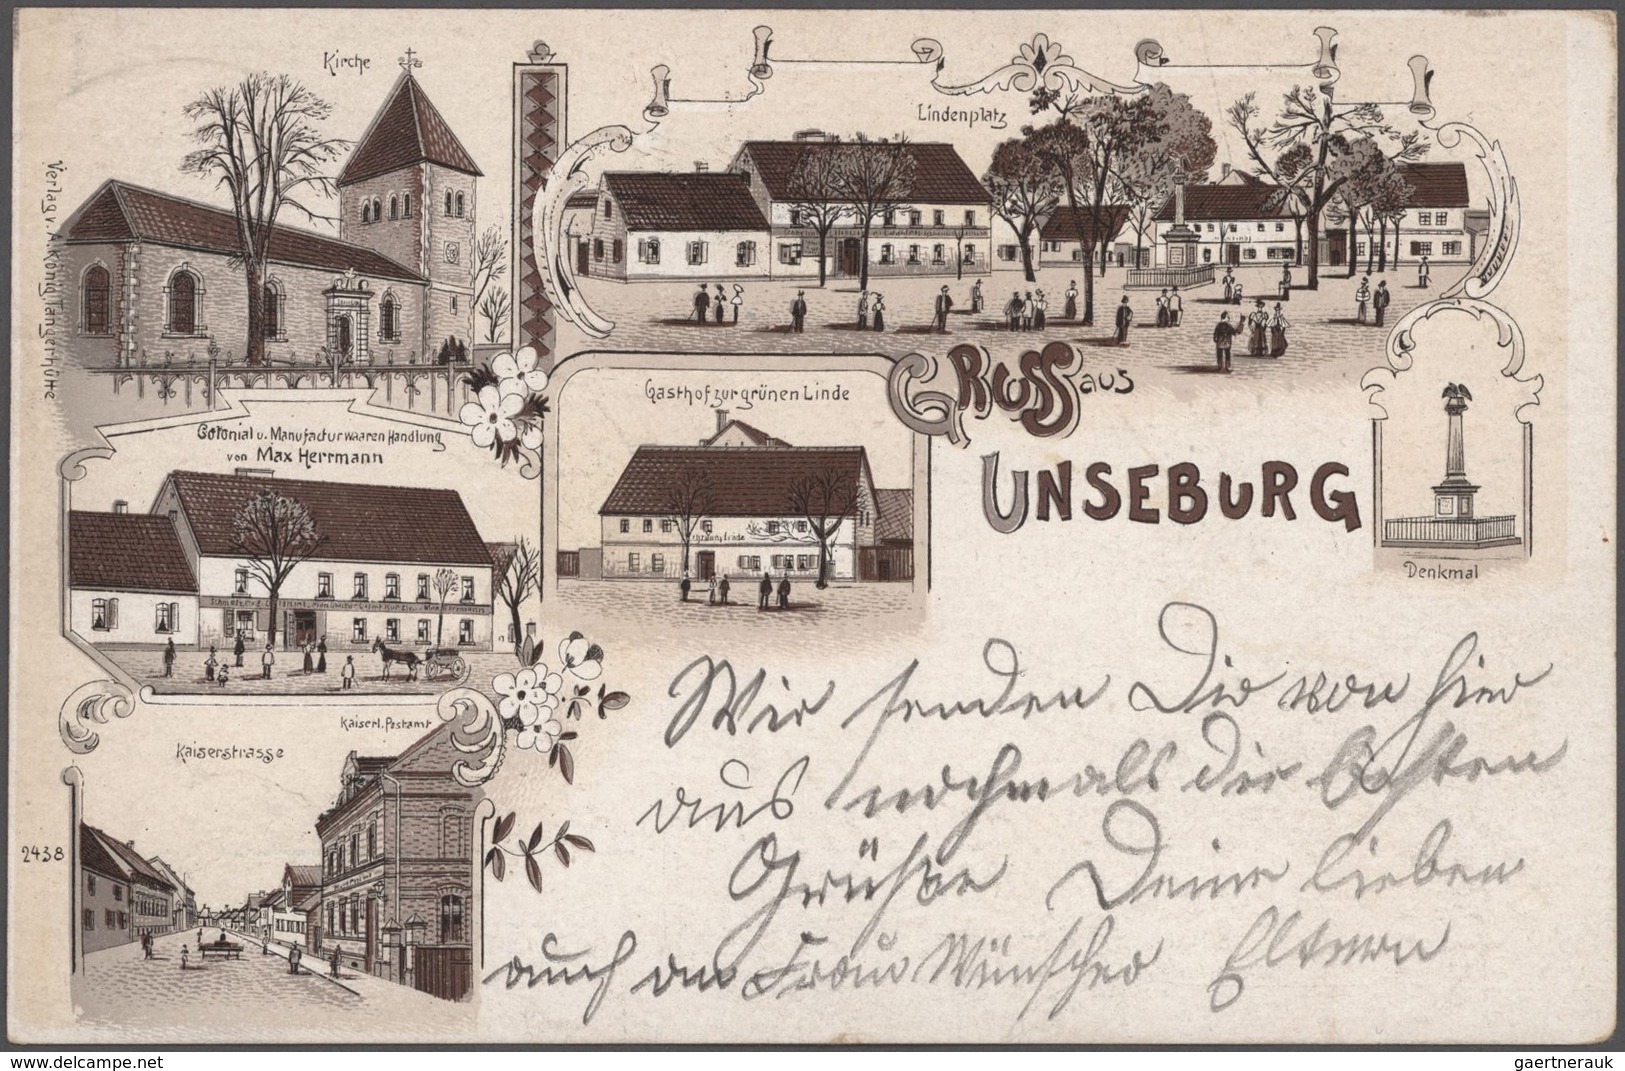 Kirche
Lindenplatz
Verlag v. A. König, Tangerhütte
Gasthof zur grünen Linde
GRUSS aus
UNSEBURG
Colonial u. Manufacturwaaren Handlung
von Max Herrmann
Denkmal
Kaiserl. Postamt
Kaiserstrasse
2438
Wir senden Dir von hier
aus nochmals die besten
Grüße Deine lieben
auch an Frau Wünscher Eltern
www.delcampe.net
gaertnerauk